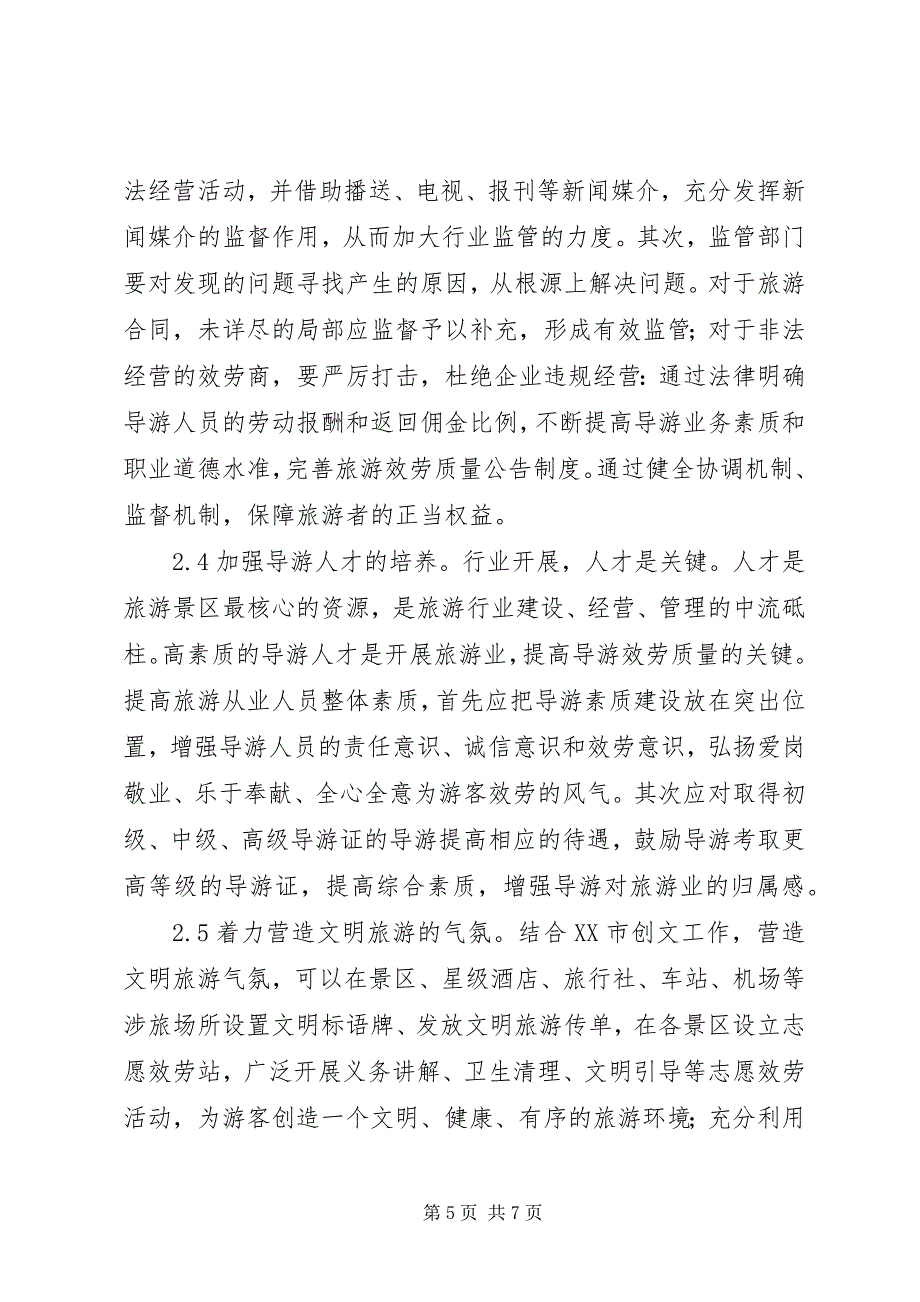 法经营活动，并借助播送、电视、报刊等新闻媒介，充分发挥新
闻媒介的监督作用，从而加大行业监管的力度。其次，监管部门
要对发现的问题寻找产生的原因，从根源上解决问题。对于旅游
合同，未详尽的局部应监督予以补充，形成有效监管；对于非法
经营的效劳商，要严厉打击，杜绝企业违规经营：通过法律明确
导游人员的劳动报酬和返回佣金比例，不断提高导游业务素质和
职业道德水准，完善旅游效劳质量公告制度。通过健全协调机制、
监督机制，保障旅游者的正当权益。
2.4 加强导游人才的培养。行业开展，人才是关键。人才是
旅游景区最核心的资源，是旅游行业建设、经营、管理的中流砥
柱。高素质的导游人才是开展旅游业，提高导游效劳质量的关键。
提高旅游从业人员整体素质，首先应把导游素质建设放在突出位
置，增强导游人员的责任意识、诚信意识和效劳意识，弘扬爱岗
敬业、乐于奉献、全心全意为游客效劳的风气。其次应对取得初
级、中级、高级导游证的导游提高相应的待遇，鼓励导游考取更
高等级的导游证，提高综合素质，增强导游对旅游业的归属感。
2.5 着力营造文明旅游的气氛。结合 XX 市创文工作，营造
文明旅游气氛，可以在景区、星级酒店、旅行社、车站、机场等
涉旅场所设置文明标语牌、发放文明旅游传单，在各景区设立志
愿效劳站，广泛开展义务讲解、卫生清理、文明引导等志愿效劳
活动，为游客创造一个文明、健康、有序的旅游环境；充分利用
第 5 页 共 7 页